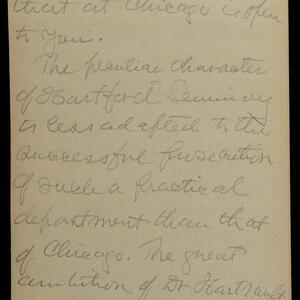 that at Chicago is open
to you.
The peculiar character
of Hartford Seminary
is less adapted to the
successful prosecution
of such a practical
department than that
of Chicago. The great
ambition of Dr Hartranft